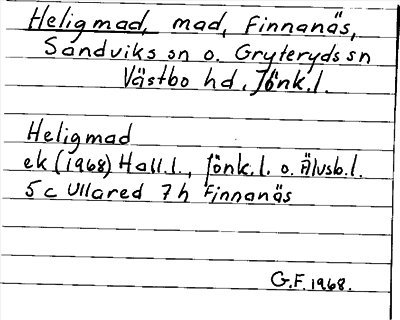 Heligmad, mad, Finnanäs,
Sandviks sn o. Gryteryds sn
Västbo hd. Jönk.l.
Heligmad
ek (1968) Hall.l., Jönk.l. o. Älvsb.l.
5c Ullared 7h Finnanäs
G.F. 1968.